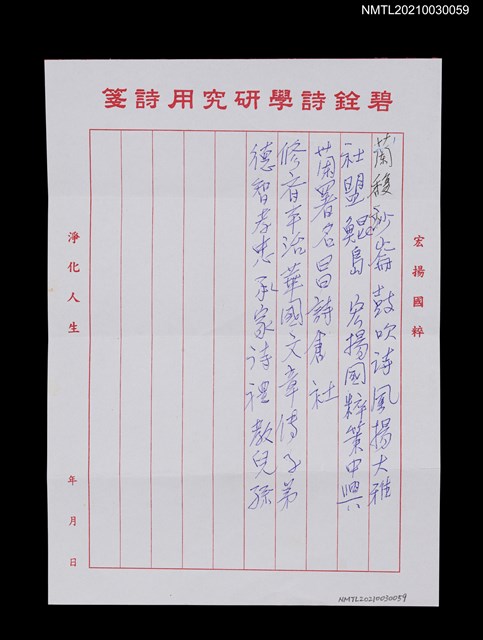 NMTL20210030059
碧銓詩學研究用詩箋
宏揚國粹
蘭馥 崙鼓吹诗風揚大雅
社盟鯤島 宏揚國粹策中興
蘭署名昌詩倉 社
修齊平治華國文章傳子弟
德智孝忠承家诗禮教兒孫
淨化人生
年 月 日
NMTL20210030059